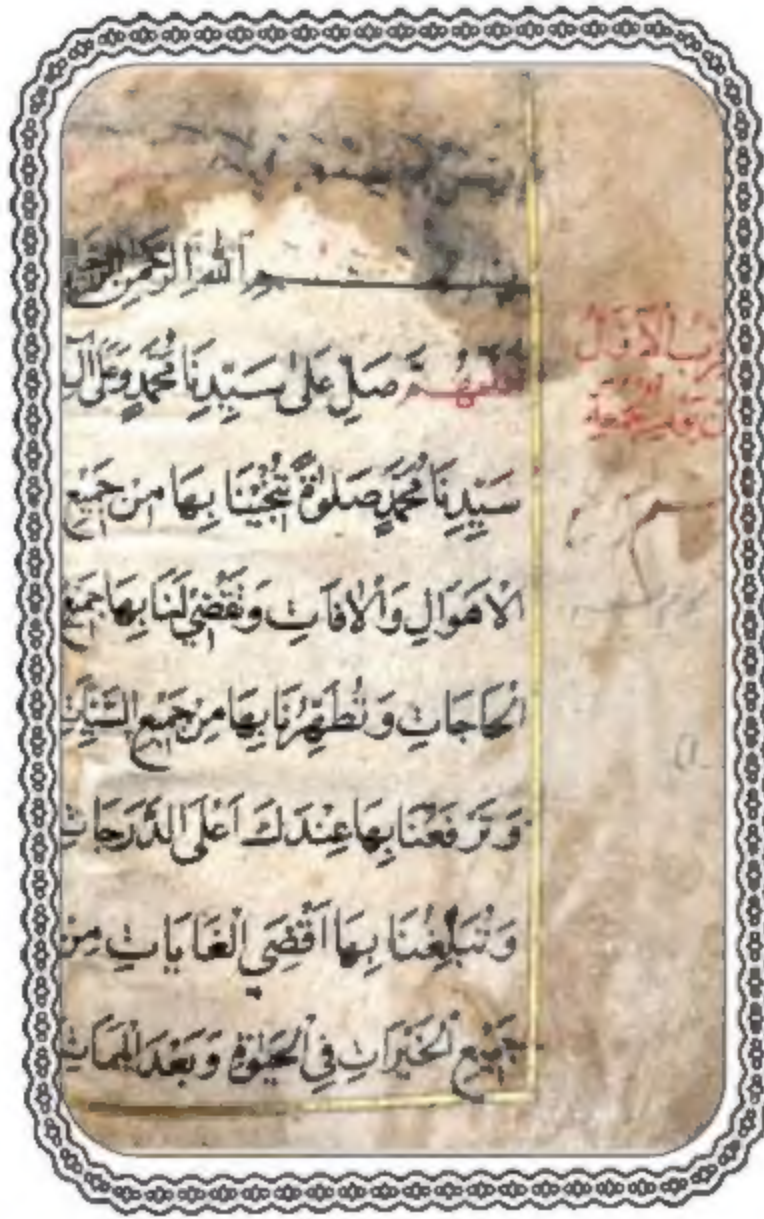 بسم الله الرحمن الرحيم
اللهم صل على سيدنا محمد وعلى ال
سَيِّدِنَا مُحَمَّدٍ صَلٰوةً تُنْجِينَا بِهَا مِنْ جَمِيعِ
الْاَهْوَالِ وَالْاٰفَاتِ وَتَقْضِي لَنَا بِهَا جَمِيعَ
الْحَاجَاتِ وَتُطَهِّرُنَا بِهَا مِنْ جَمِيعِ السَّيِّئَاتِ
وَتَرْفَعُنَا بِهَا عِنْدَكَ اَعْلَى الدَّرَجَاتِ
وَتُبَلِّغُنَا بِهَا اَقْصَى الْغَايَاتِ مِنْ
جَمِيعِ الْخَيْرَاتِ فِي الْحَيٰوةِ وَبَعْدَ الْمَمَاتِ